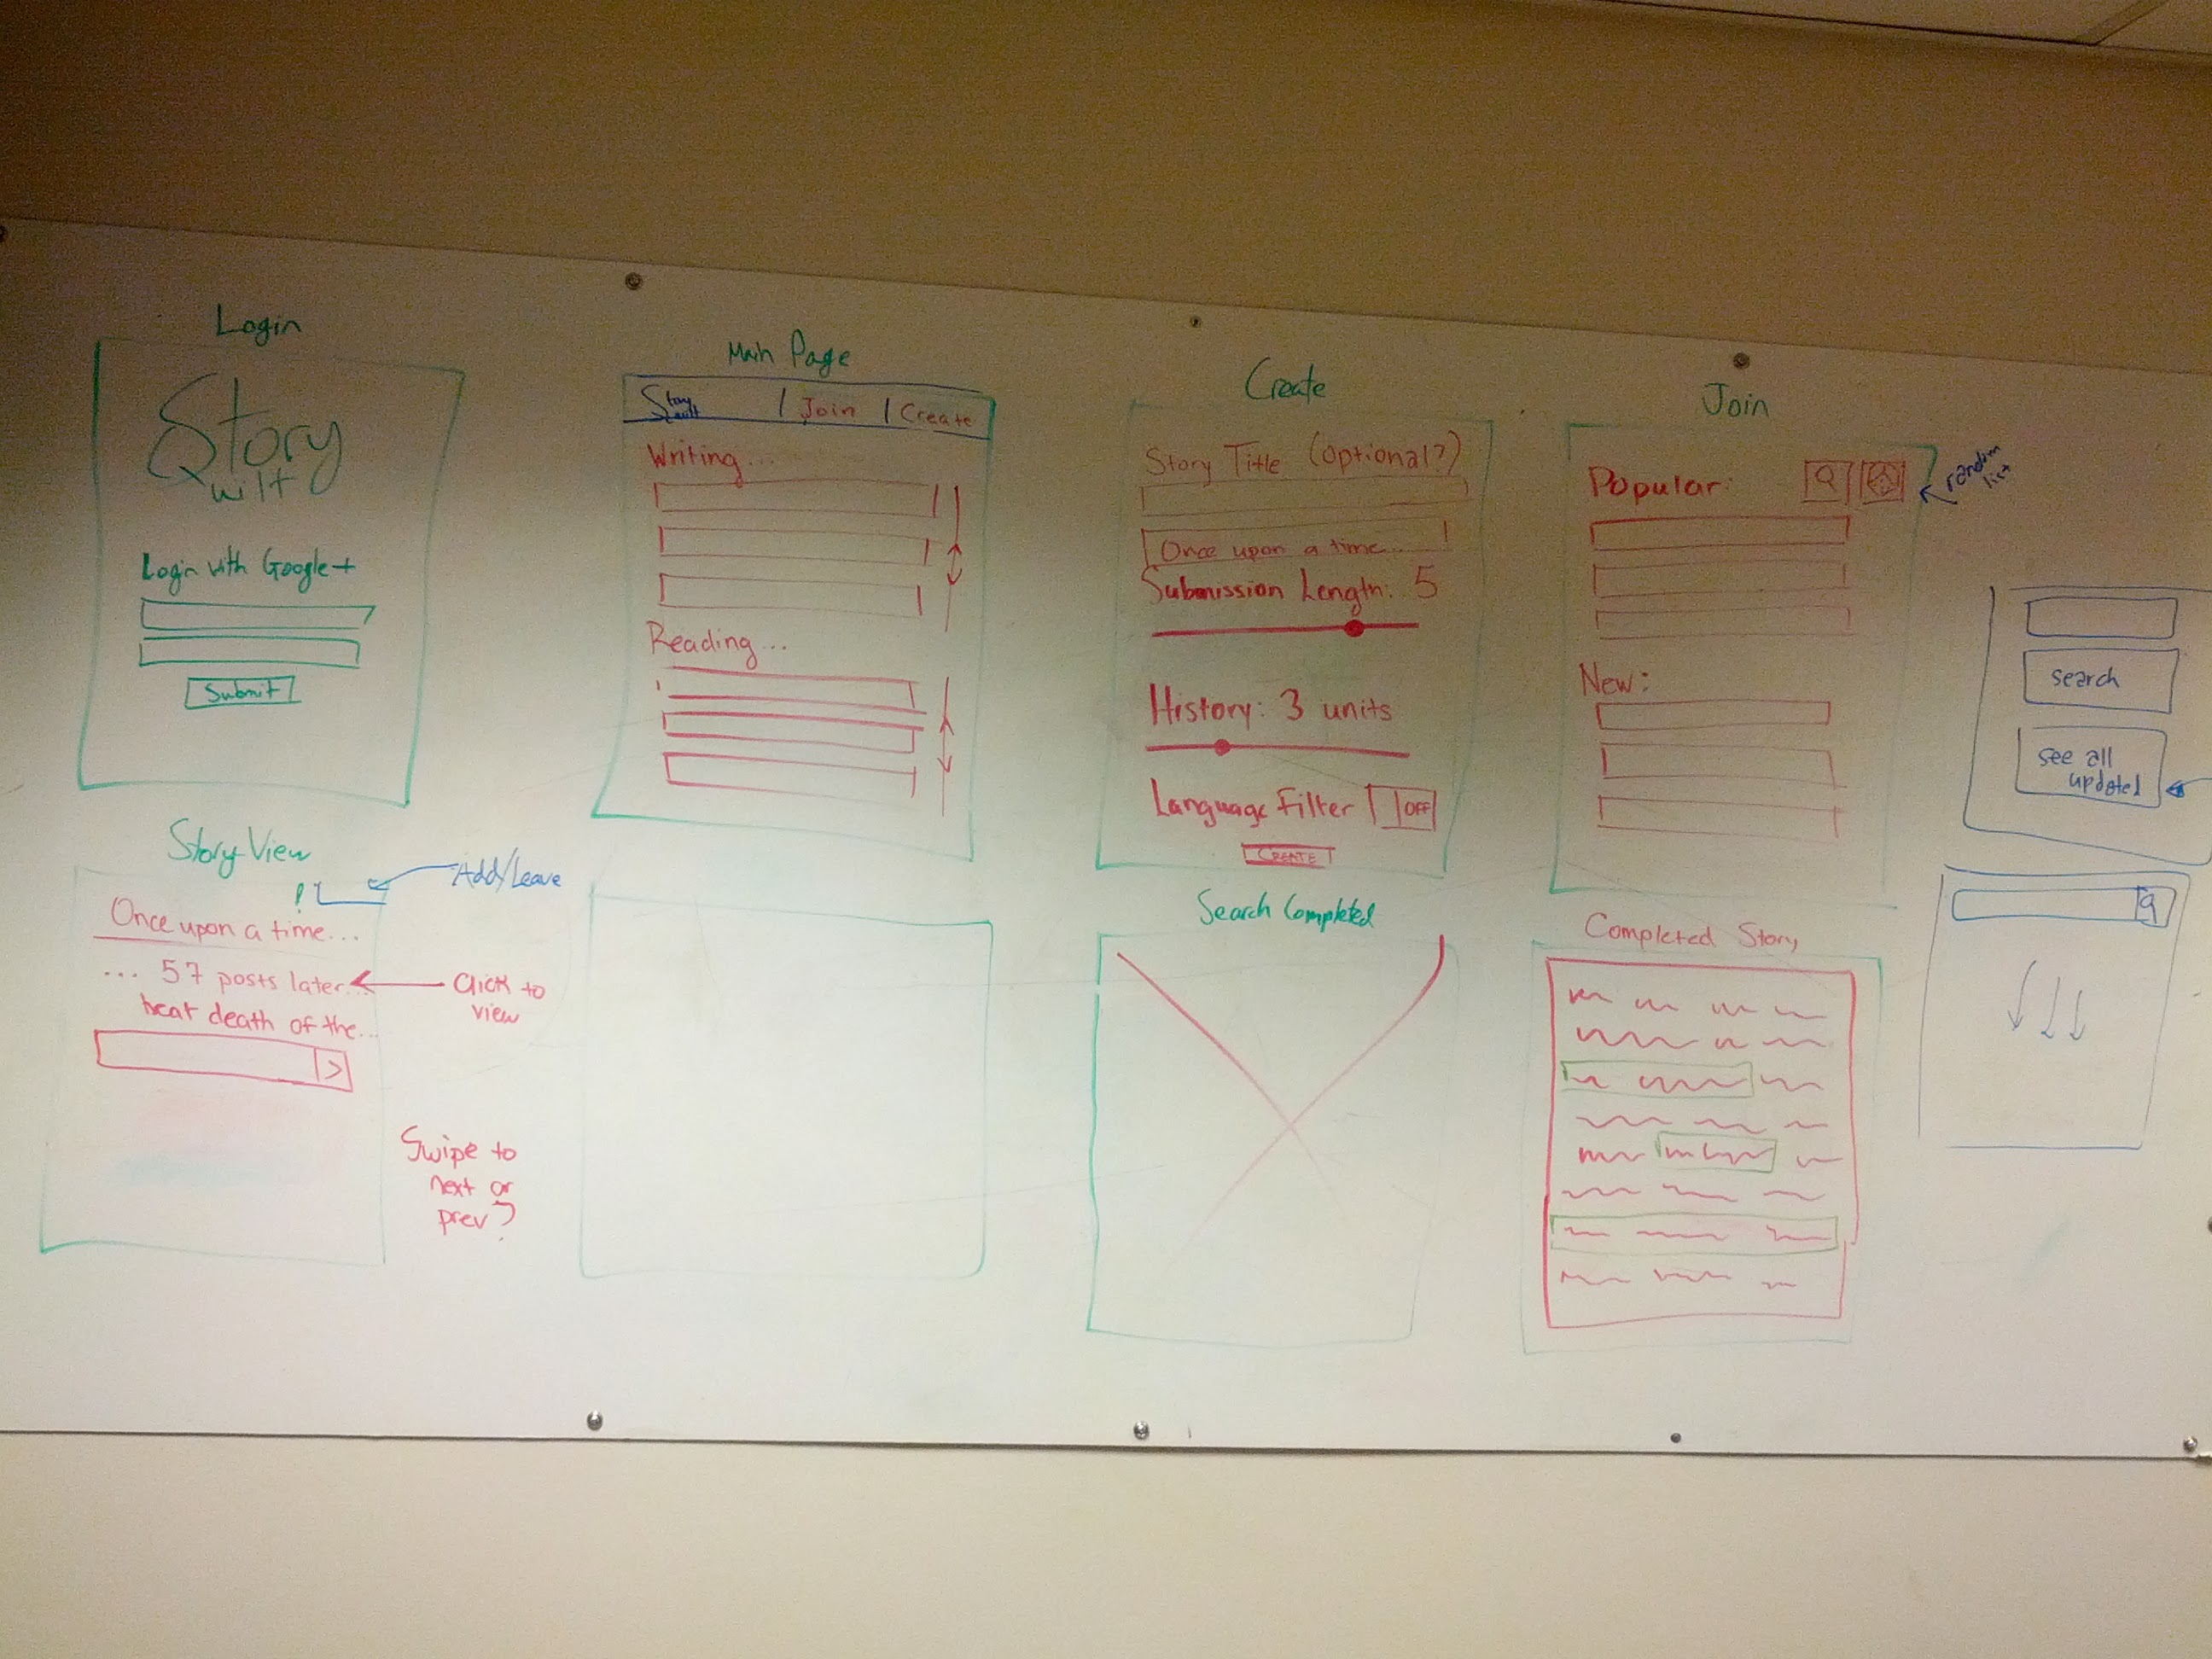 Login
Story
Quilt
Login with Google+
Submit
Main Page
Story
Quilt
Join
Create
Writing...
Reading...
Create
Story Title (optional?)
Once upon a time...
Submission Length: 5
History: 3 units
Language Filter OFF
CREATE
Join
Popular:
random
list
New:
search
see all
updated
Story View
Add/Leave
Once upon a time...
... 57 posts later...
Click to
view
heat death of the...
>
Swipe to
next or
prev?
Search Completed
Completed Story